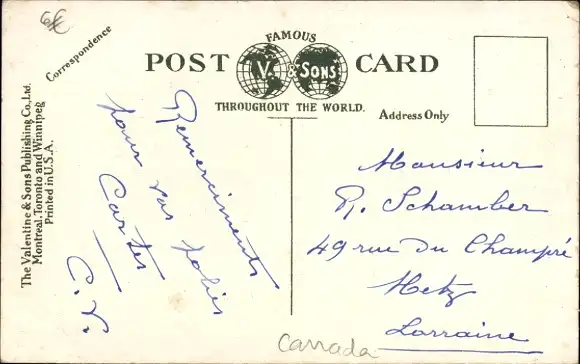 6€
Correspondence
FAMOUS
POST CARD
V. & SONS
THROUGHOUT THE WORLD.
Address Only
The Valentine & Sons Publishing Co., Ltd.
Montreal, Toronto and Winnipeg
Printed in U.S.A.
Remerciments
pour vos jolies
Cartes
C. V.
Monsieur
R. Schamber
49 rue du Champé
Metz
Lorraine
Canada